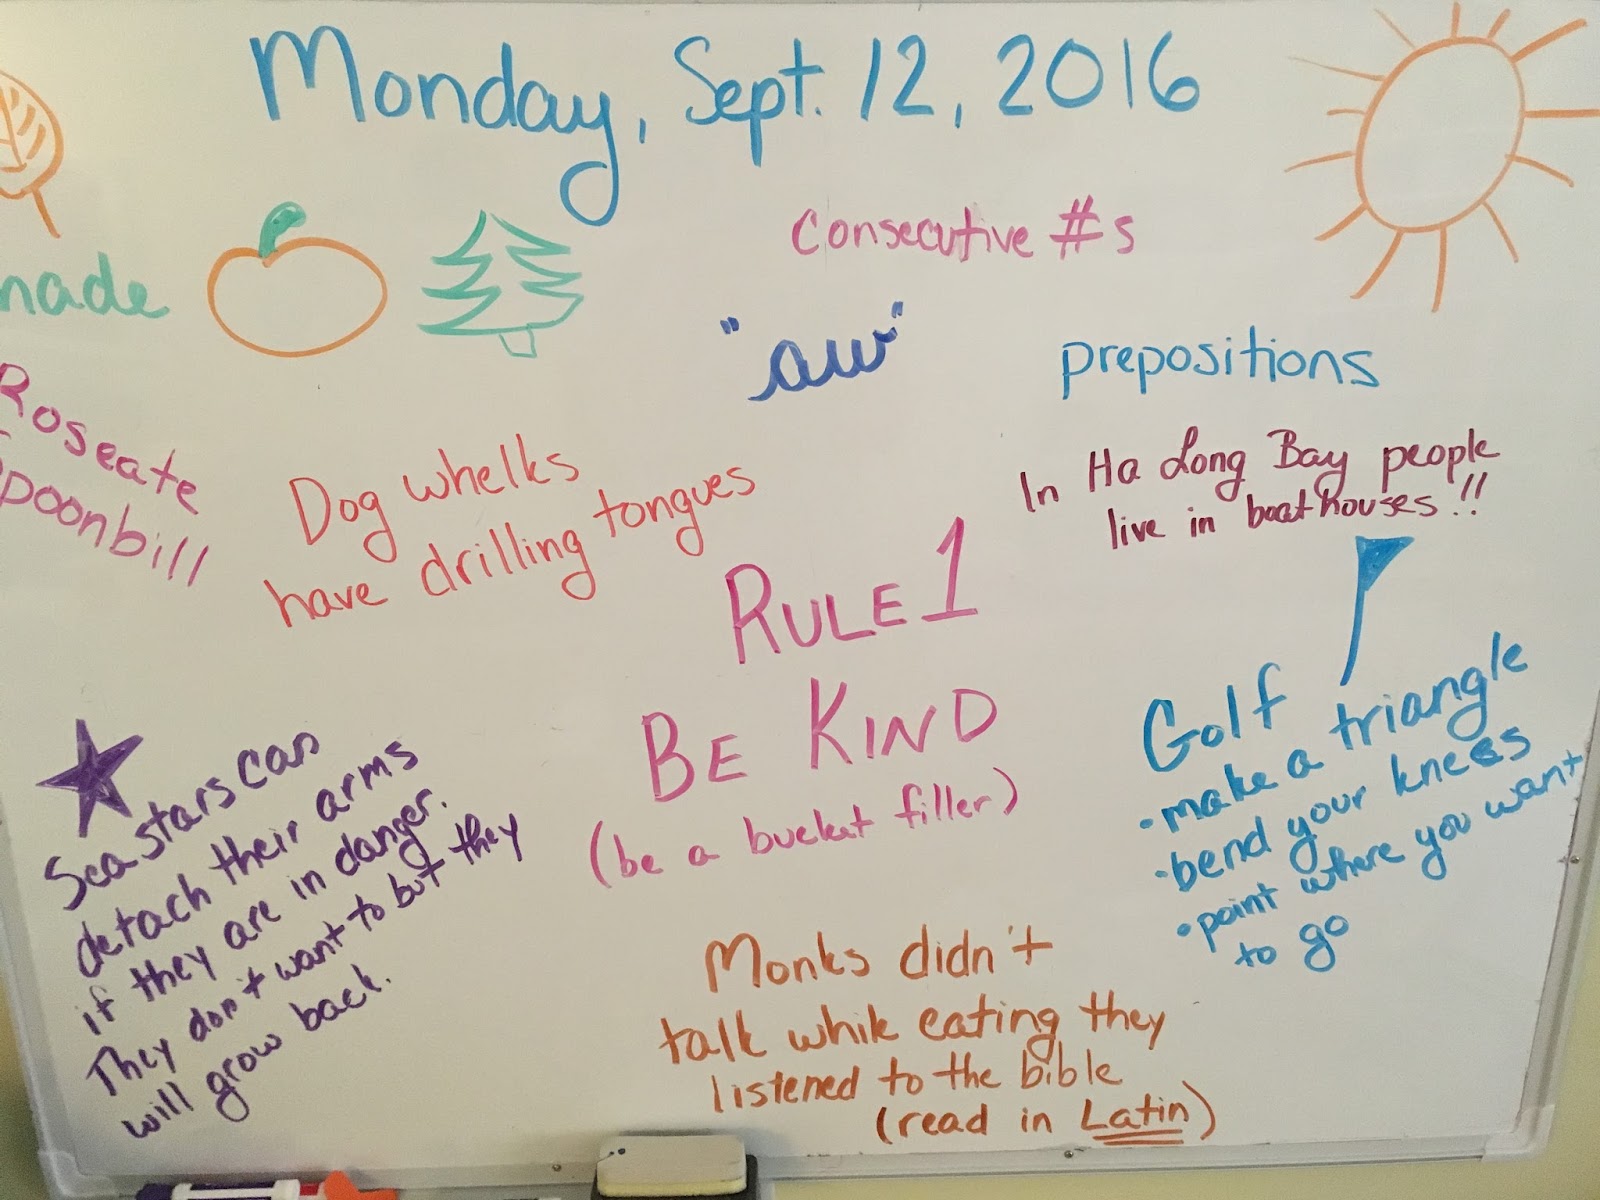 Monday, Sept. 12, 2016
Consecutive #s
"aw"
prepositions
Roseate
Spoonbill
Dog whelks
have drilling tongues
In Ha Long Bay people
live in boathouses!!
RULE 1
BE KIND
(be a bucket filler)
Golf
• make a triangle
• bend your knees
• point where you want
to go
Sea stars can
detach their arms
if they are in danger.
They don't want to but they
will grow back.
Monks didn't
talk while eating they
listened to the bible
(read in Latin)